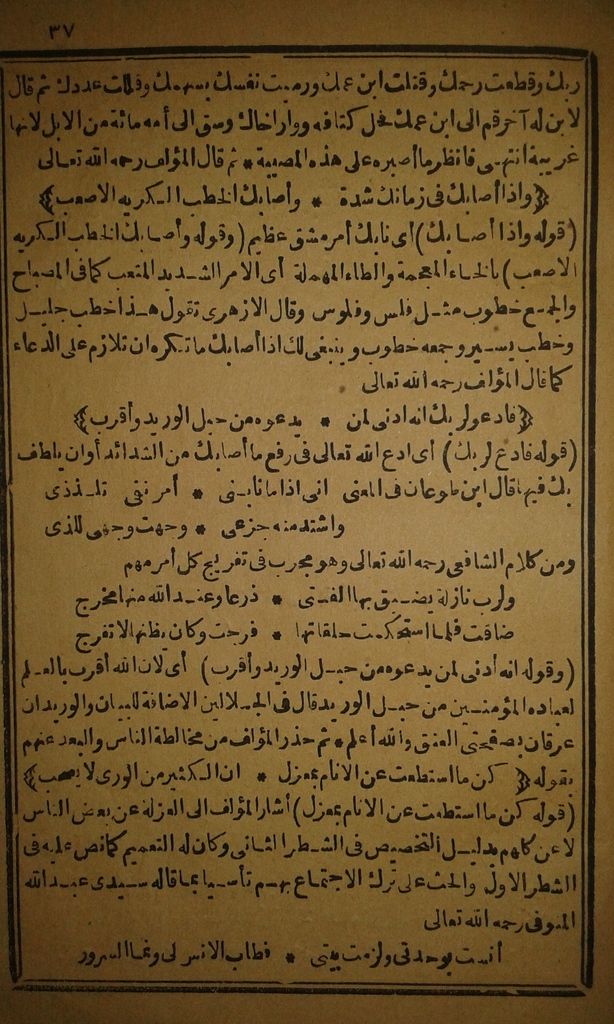 ٣٧
ربك وقطعت رحمك وقتلت ابن عمك ورميت نفسك بسهمك وقللت عددك ثم قال
لابن له آخر قم الى ابن عمك فحل كتافه ووار اخاك وسق الى أمه مائة من الابل لانها
غريبة انتهى فانظر ما أصبره على هذه المصيبة * ثم قال المؤلف رحمه الله تعالى
﴿واذا أصابك فى زمانك شدة * وأصابك الخطب الكريه الاصعب﴾
(قوله واذا أصابك) أى نابك أمر مشق عظيم (وقوله وأصابك الخطب الكريه
الاصعب) بالخاء المعجمة والطاء المهملة أى الامر الشديد المتعب كما فى المصباح
والجمع خطوب مثل فلس وفلوس وقال الازهرى تقول هذا خطب جليل
وخطب يسير وجمعه خطوب وينبغى لك اذا أصابك ما تكره ان تلازم على الدعاء
كما قال المؤلف رحمه الله تعالى
﴿فادعو لربك انه ادنى لمن * يدعوه من حبل الوريد وأقرب﴾
(قوله فادع لربك) أى ادع الله تعالى فى رفع ما أصابك من الشدائد أوان يلطف
بك فيها قال ابن طوعان فى المعنى انى اذا ما نابنى * أمر نفى تلذذى
واشتد منه جزعى * وجهت وجهى للذى
ومن كلام الشافعى رحمه الله تعالى وهو مجرب فى تفريج كل أمر مهم
ولرب نازلة يضيق بها الفتى * ذرعا وعند الله منها مخرج
ضاقت فلما استحكمت حلقاتها * فرجت وكان يظنها لا تفرج
(وقوله انه أدنى لمن يدعوه من حبل الوريد وأقرب) أى لان الله أقرب بالعلم
لعباده المؤمنين من حبل الوريد قال فى الجلالين الاضافة للبيان والوريدان
عرقان بصفحتى العنق والله أعلم * ثم حذر المؤلف من مخالطة الناس والبعد عنهم
بقوله ﴿كن ما استطعت عن الانام بمعزل * ان الكثير من الورى لا يصحب﴾
(قوله كن ما استطعت عن الانام بمعزل) أشار المؤلف الى العزلة عن بعض الناس
لا عن كلهم بدليل التخصيص فى الشطر الثانى وكان له التعميم كما نص عليه فى
الشطر الاول والحث على ترك الاجتماع بهم تأسيا بما قاله سيدى عبد الله
المنوفى رحمه الله تعالى
أنست بوحدتى ولزمت بيتى * فطاب الانس لى ونما السرور